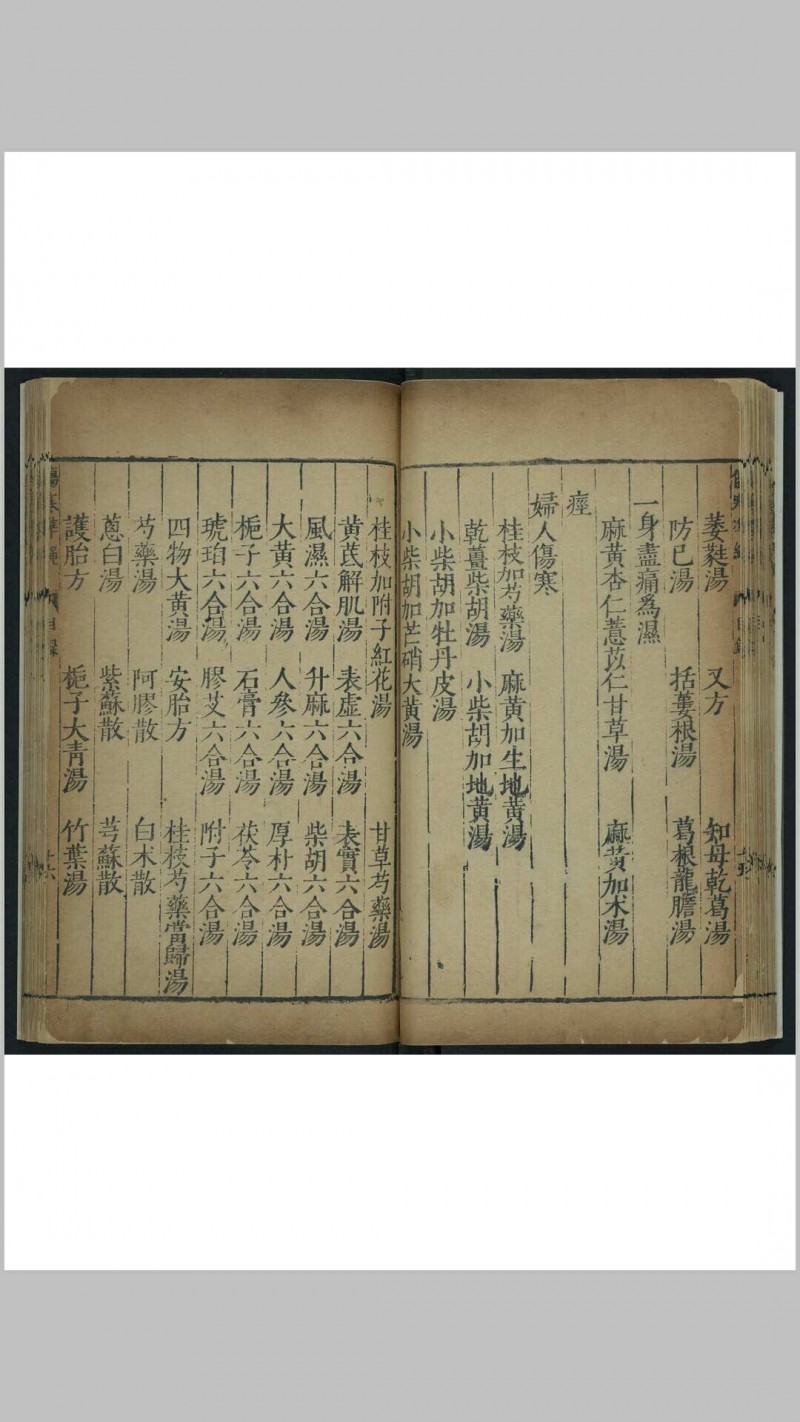 萎蕤湯 又方 知母乾葛湯
防巳湯 括蔞根湯 葛根龍膽湯
一身盡痛爲濕
麻黃杏仁薏苡仁甘草湯 麻黃加术湯
痙
婦人傷寒
桂枝加芍藥湯 麻黃加生地黃湯
乾薑柴胡湯 小柴胡加地黃湯
小柴胡加牡丹皮湯
小柴胡加芒硝大黃湯
桂枝加附子紅花湯 甘草芍藥湯
黃芪解肌湯 表虛六合湯 表實六合湯
風濕六合湯 升麻六合湯 柴胡六合湯
大黃六合湯 人參六合湯 厚朴六合湯
梔子六合湯 石膏六合湯 茯苓六合湯
琥珀六合湯 膠艾六合湯 附子六合湯
四物大黃湯 安胎方 桂枝芍藥當歸湯
芍藥湯 阿膠散 白术散
蔥白湯 紫蘇散 芎蘇散
護胎方 梔子大青湯 竹葉湯